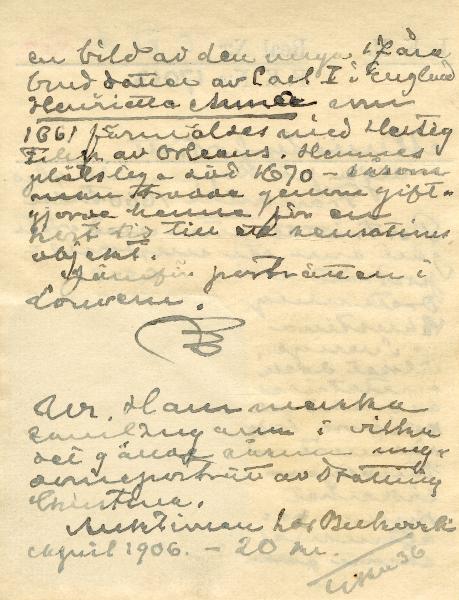 en bild av den unga 17 åra
brud dotter av Carl I i England
Henrietta Anna som
1661 förmäldes med Hertig
Filip av Orleans. Hennes
plötsliga död 1670 – såsom
man trodde genom gift-
gjorde henne för en
kort tid till ett sensations
objekt.
Jämför porträtten i
Louvern.
Ur. Hammerska
samlingarna i vilka
det
porträtt av Drottning
Christina.
Auktionen hos Bukowski
april 1906. – 20 kr.
36